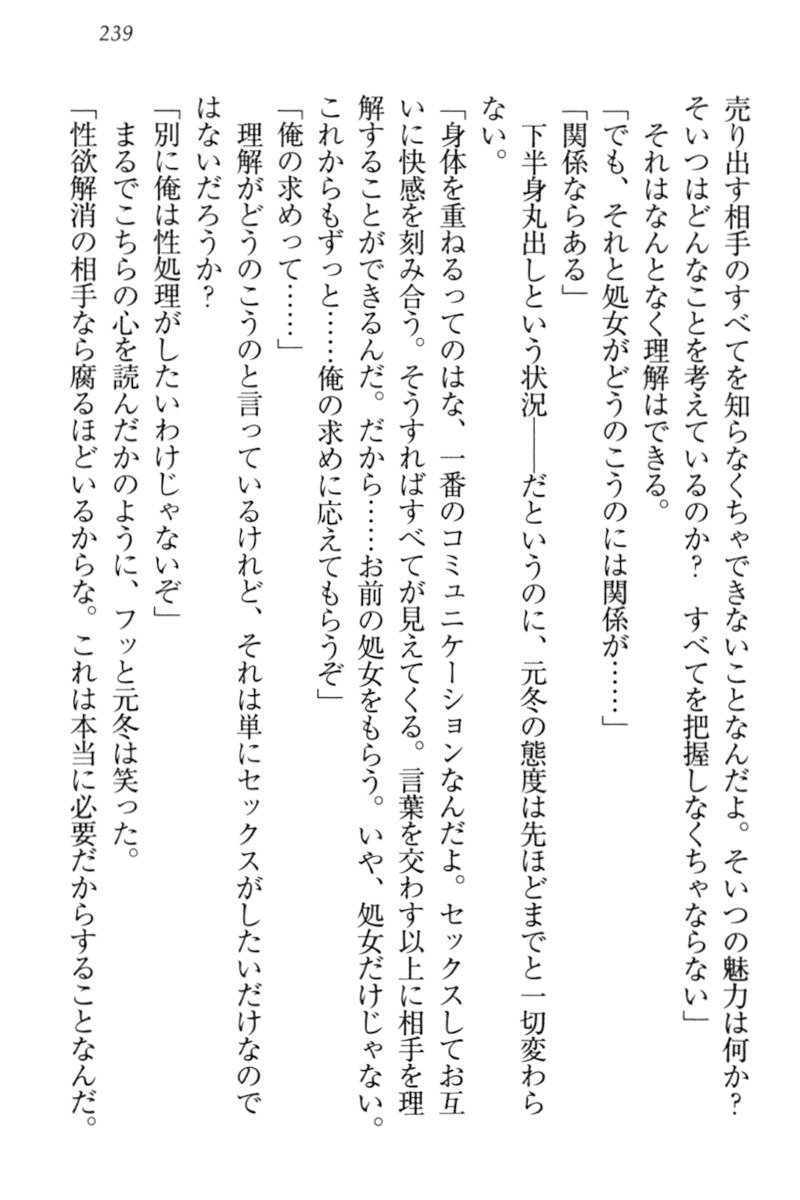 239
売り出す相手のすべてを知らなくちゃできないことなんだよ。そいつの魅力は何か?
そいつはどんなことを考えているのか? すべてを把握しなくちゃならない」
それはなんとなく理解はできる。
「でも、それと処女がどうのこうのには関係が……」
「関係ならある」
下半身丸出しという状況――だというのに、元冬の態度は先ほどまでと一切変わら
ない。
「身体を重ねるってのはな、一番のコミュニケーションなんだよ。セックスしてお互
いに快感を刻み合う。そうすればすべてが見えてくる。言葉を交わす以上に相手を理
解することができるんだ。だから……お前の処女をもらう。いや、処女だけじゃない。
これからもずっと……俺の求めに応えてもらうぞ」
「俺の求めって……」
理解がどうのこうのと言っているけれど、それは単にセックスがしたいだけなので
はないだろうか?
「別に俺は性処理がしたいわけじゃないぞ」
まるでこちらの心を読んだかのように、フッと元冬は笑った。
「性欲解消の相手なら腐るほどいるからな。これは本当に必要だからすることなんだ。